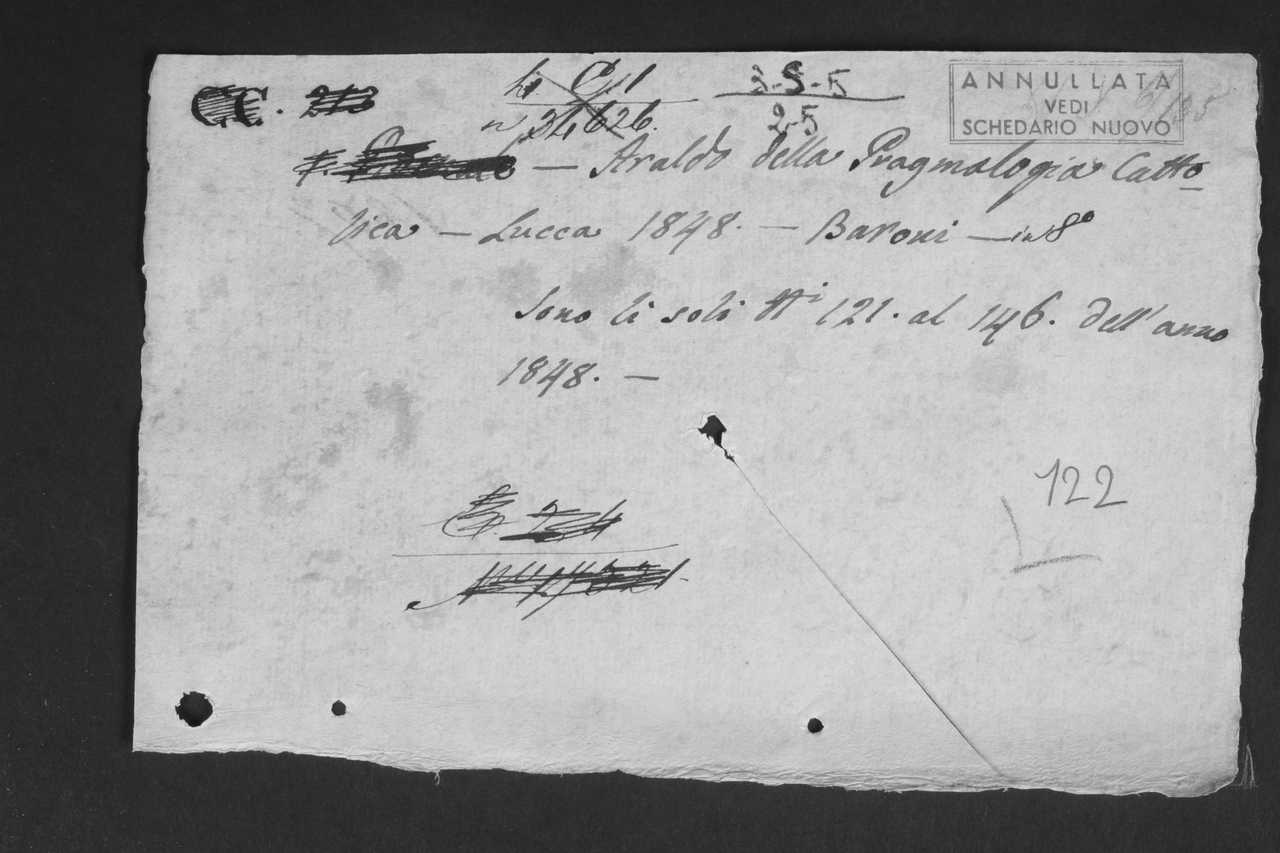 CC. 213
C, 1
n 34626.
3-S-5
2-5
ANNULLATA
VEDI
SCHEDARIO NUOVO
— Araldo della Pragmalogia Catto
lica — Lucca 1848. — Baroni — in 8º
Sono li soli Nⁱ 121. al 146. dell'anno
1848. —
122